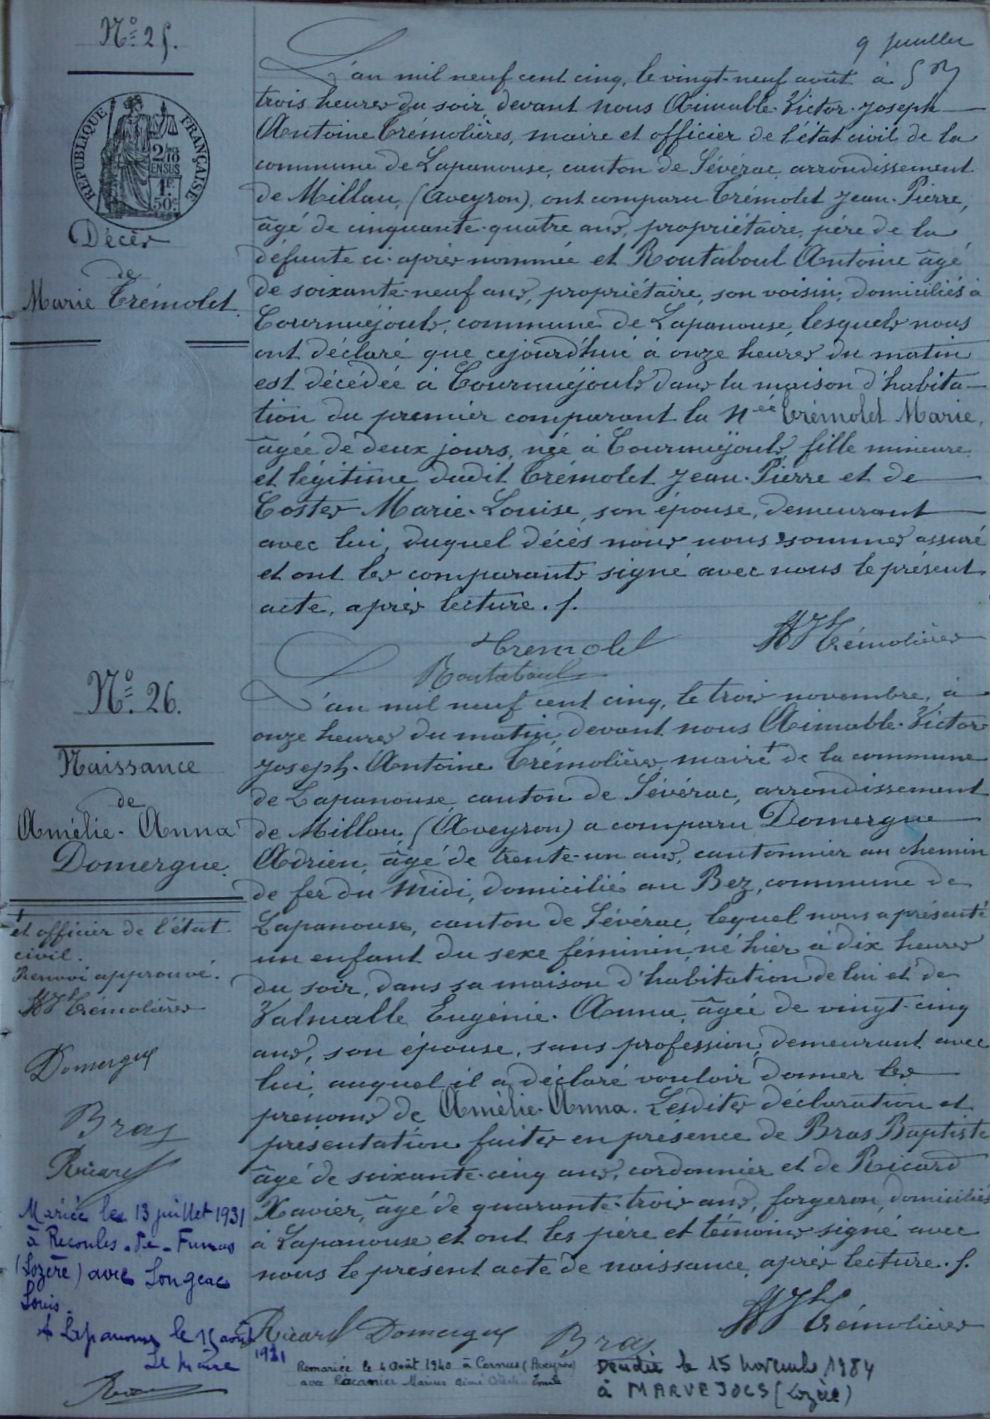 9 feuillet
N° 25.
RÉPUBLIQUE FRANÇAISE
2/10 EN SUS
1F 50C
Décès
de
Marie Trémolet.
L'an mil neuf cent cinq, le vingt-neuf août à
trois heures du soir, devant nous Aimable-Victor-Joseph
Antoine Trémolières, maire et officier de l'état civil de la
commune de Lapanouse, canton de Sévérac, arrondissement
de Millau, (Aveyron), ont comparu Trémolet Jean-Pierre,
âgé de cinquante-quatre ans, propriétaire, père de la
défunte ci-après nommée et Routaboul Antoine âgé
de soixante-neuf ans, propriétaire, son voisin, domiciliés à
Tournuéjouls, commune de Lapanouse, lesquels nous
ont déclaré que cejourd'hui à onze heures du matin
est décédée à Tournuéjouls dans la maison d'habita-
tion du premier comparant la née Trémolet Marie,
âgée de deux jours, née à Tournuéjouls, fille mineure
et légitime dudit Trémolet Jean-Pierre et de
Costes Marie-Louise, son épouse, demeurant
avec lui, duquel décès nous nous sommes assuré
et ont les comparants signé avec nous le présent
acte, après lecture.
Tremolet
Trémolières
Routaboul
N° 26.
Naissance
de
Amélie-Anna
Domergue.
L'an mil neuf cent cinq, le trois novembre, à
onze heures du matin, devant nous Aimable-Victor
Joseph-Antoine Trémolières maire + de la commune
de Lapanouse, canton de Sévérac, arrondissement
de Millau (Aveyron) a comparu Domergue
Adrien, âgé de trente-un ans, cantonnier au chemin
de fer du Midi, domicilié au Bez, commune de
Lapanouse, canton de Sévérac, lequel nous a présenté
un enfant du sexe féminin, né hier à dix heures
du soir, dans sa maison d'habitation de lui et de
Valmalle Eugénie-Anna, âgée de vingt-cinq
ans, son épouse, sans profession, demeurant avec
lui, auquel il a déclaré vouloir donner les
prénoms de Amélie-Anna. Lesdites déclaration et
présentation faites en présence de Bras Baptiste
âgé de soixante-cinq ans, cordonnier et de Ricard
Xavier, âgé de quarante-trois ans, forgeron, domiciliés
à Lapanouse et ont les père et témoins signé avec
nous le présent acte de naissance, après lecture.
+
et officier de l'état
civil.
Renvoi approuvé.
Trémolières
Domergue
Bras
Ricard
Mariée le 13 juillet 1931
à Recoules-de-Fumas
(Lozère) avec Longeac
Louis.
Lapanouse le 15 août
1931
Le Maire
Ricard Domergue Bras
Trémolières
Remariée le 4 Août 1940 à Cornus (Aveyron)
avec Marius Aimé Emile
Décédée le 15 novembre 1984
à MARVEJOLS (Lozère)